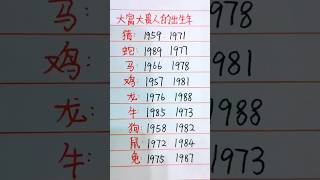 大富大贵人的出生年
猪: 1959 1971
蛇: 1989 1977
马: 1966 1978
鸡: 1957 1981
龙: 1976 1988
牛: 1985 1973
狗: 1958 1982
鼠: 1972 1984
兔: 1975 1987